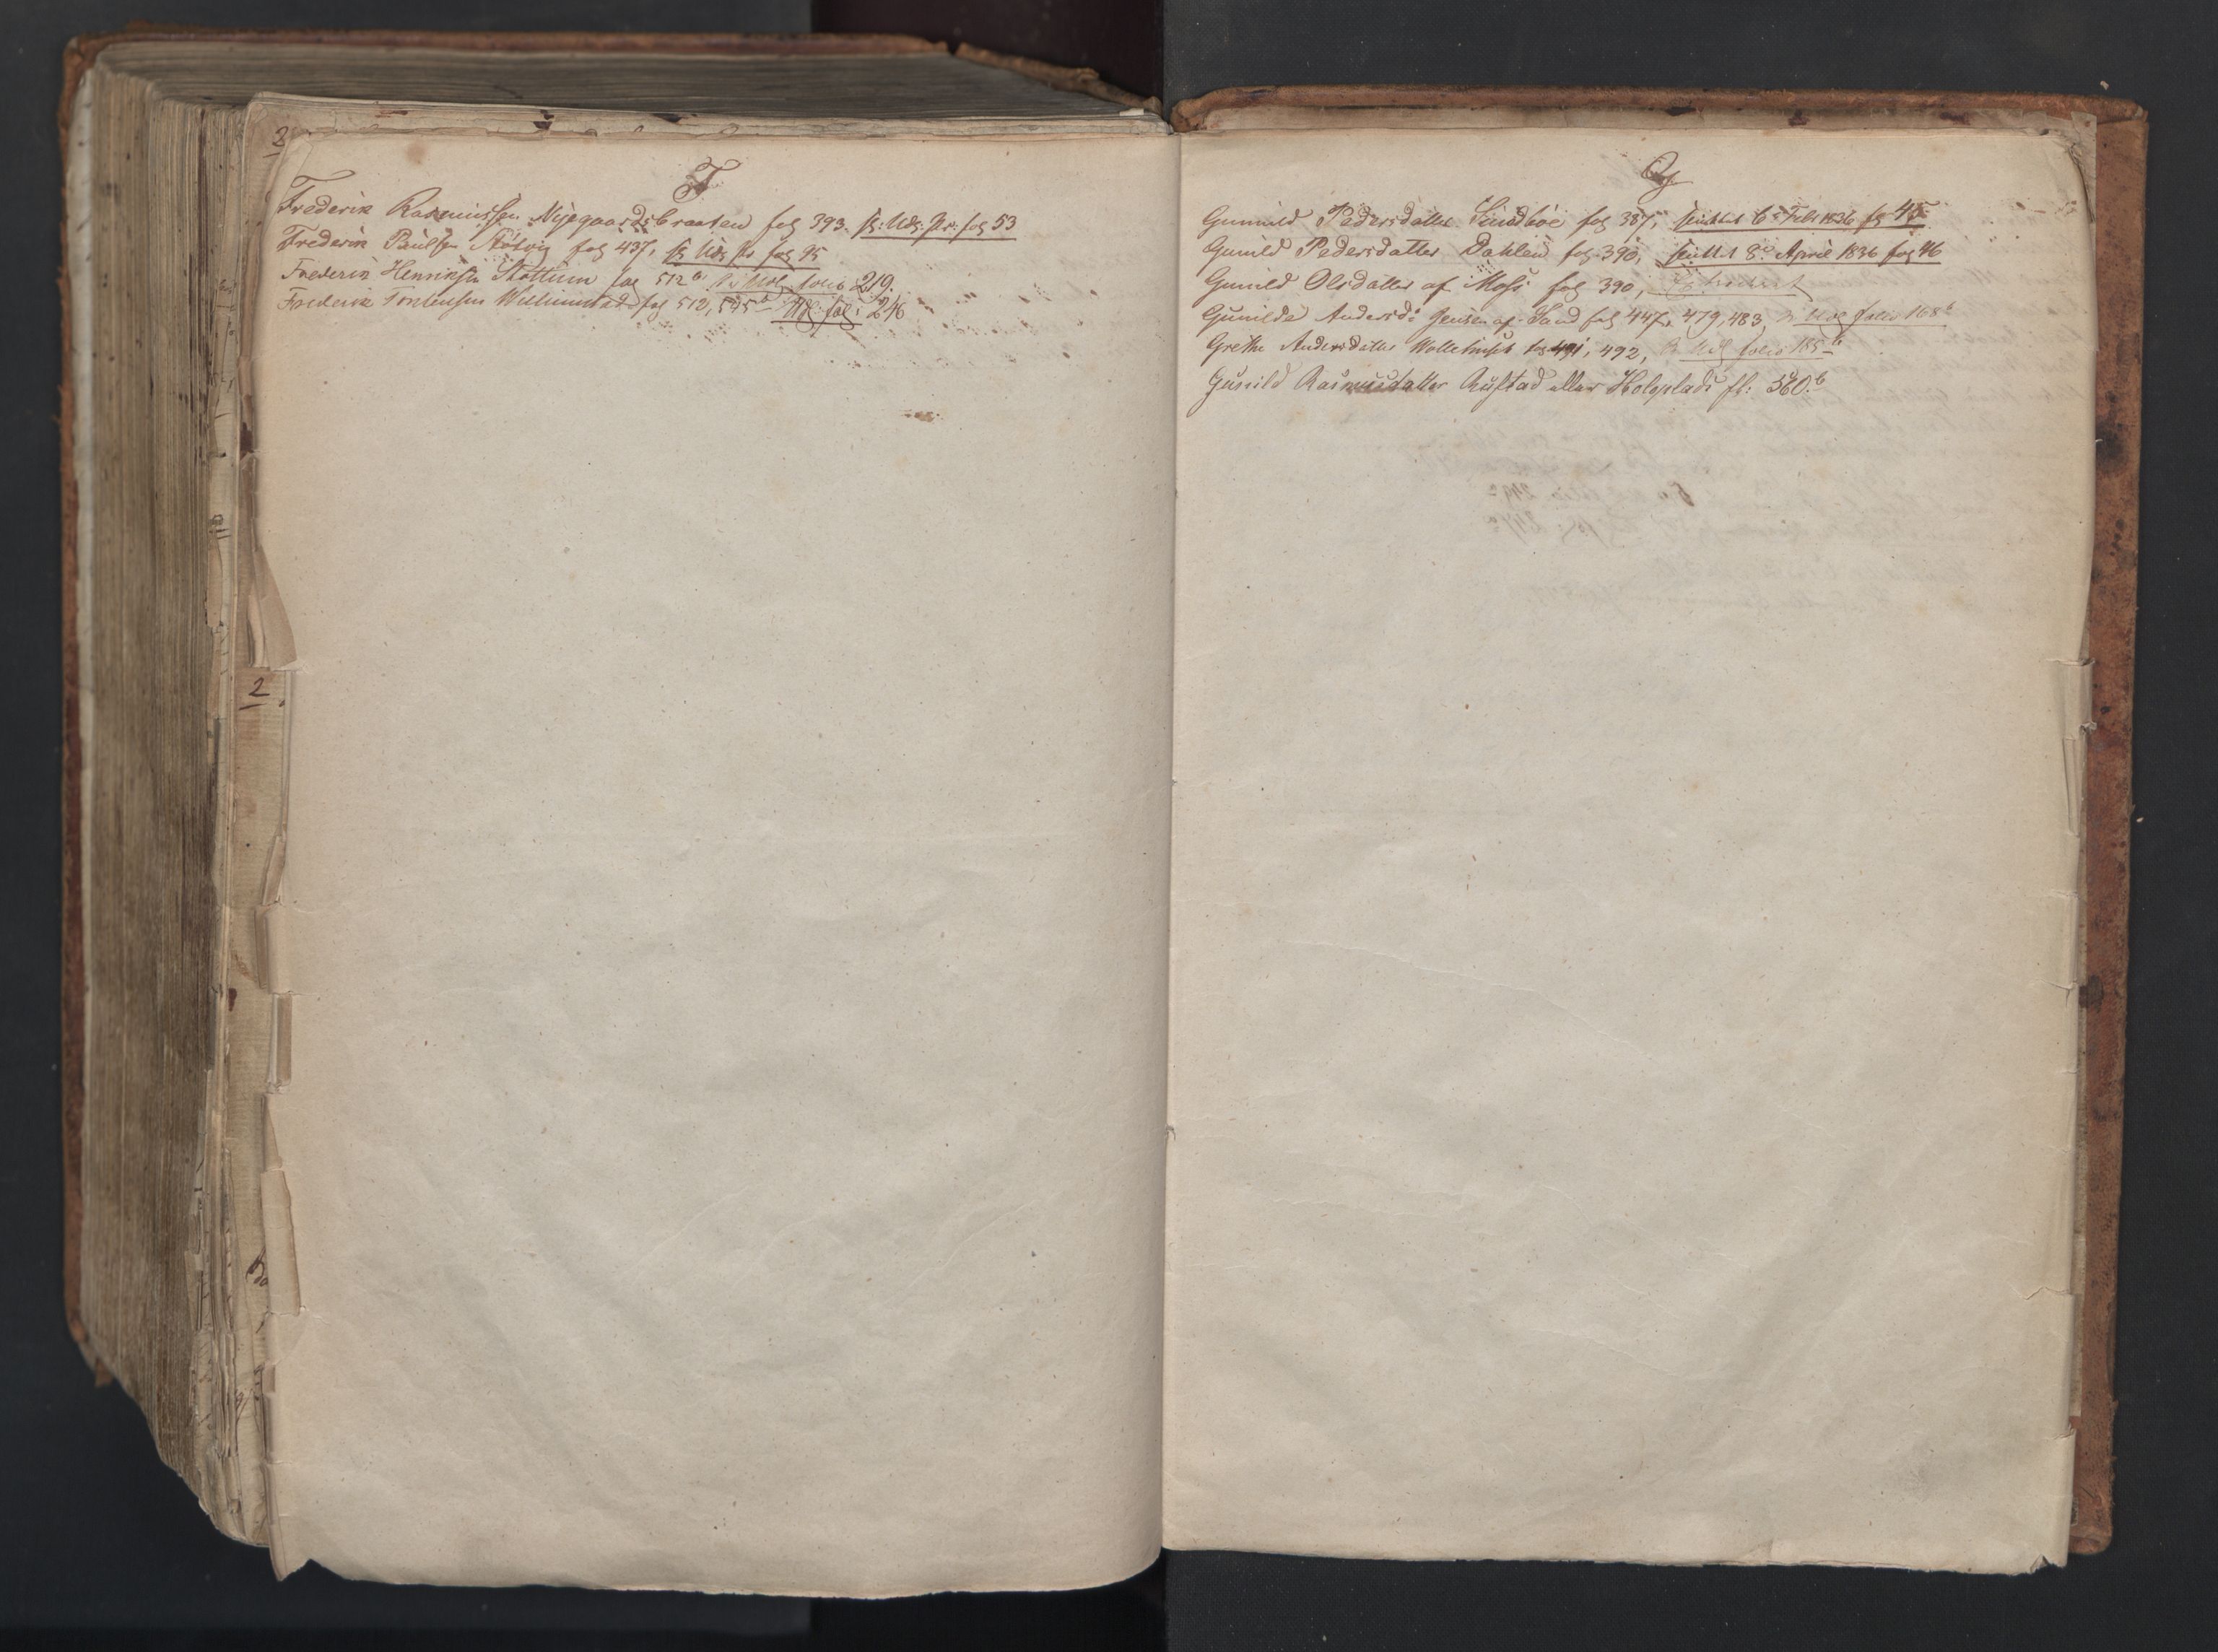 F
Frederik Rasmussen Nyegaardsbraaten fol 393. s: Uds: Pr: fol 53
Frederik Paulsen Nötvig fol 437, Uds Pr fol 95
Frederik Henriksen Stottum fol 512 b folio 219.
Frederik Torstensen Willumstad fol 512, 545 b Udl: fol: 246
G
Gunnild Pedersdatter Sundboe fol 387, sluttet 6 Febr 1836 fol 45
Gunild Pedersdatter Dahlen fol 390, sluttet 8de April 1836 fol 46
Gunild Olsdatter af Moss fol 390,
Gunilde Andersd: Jensen af Sand fol 447, 479, 483, Udl folio 168 b
Grethe Andersdatter fol 491, 492, Udl folio 185 b
Gunild Rasmusdatter Rustad eller Holsplads fl: 560. b
2